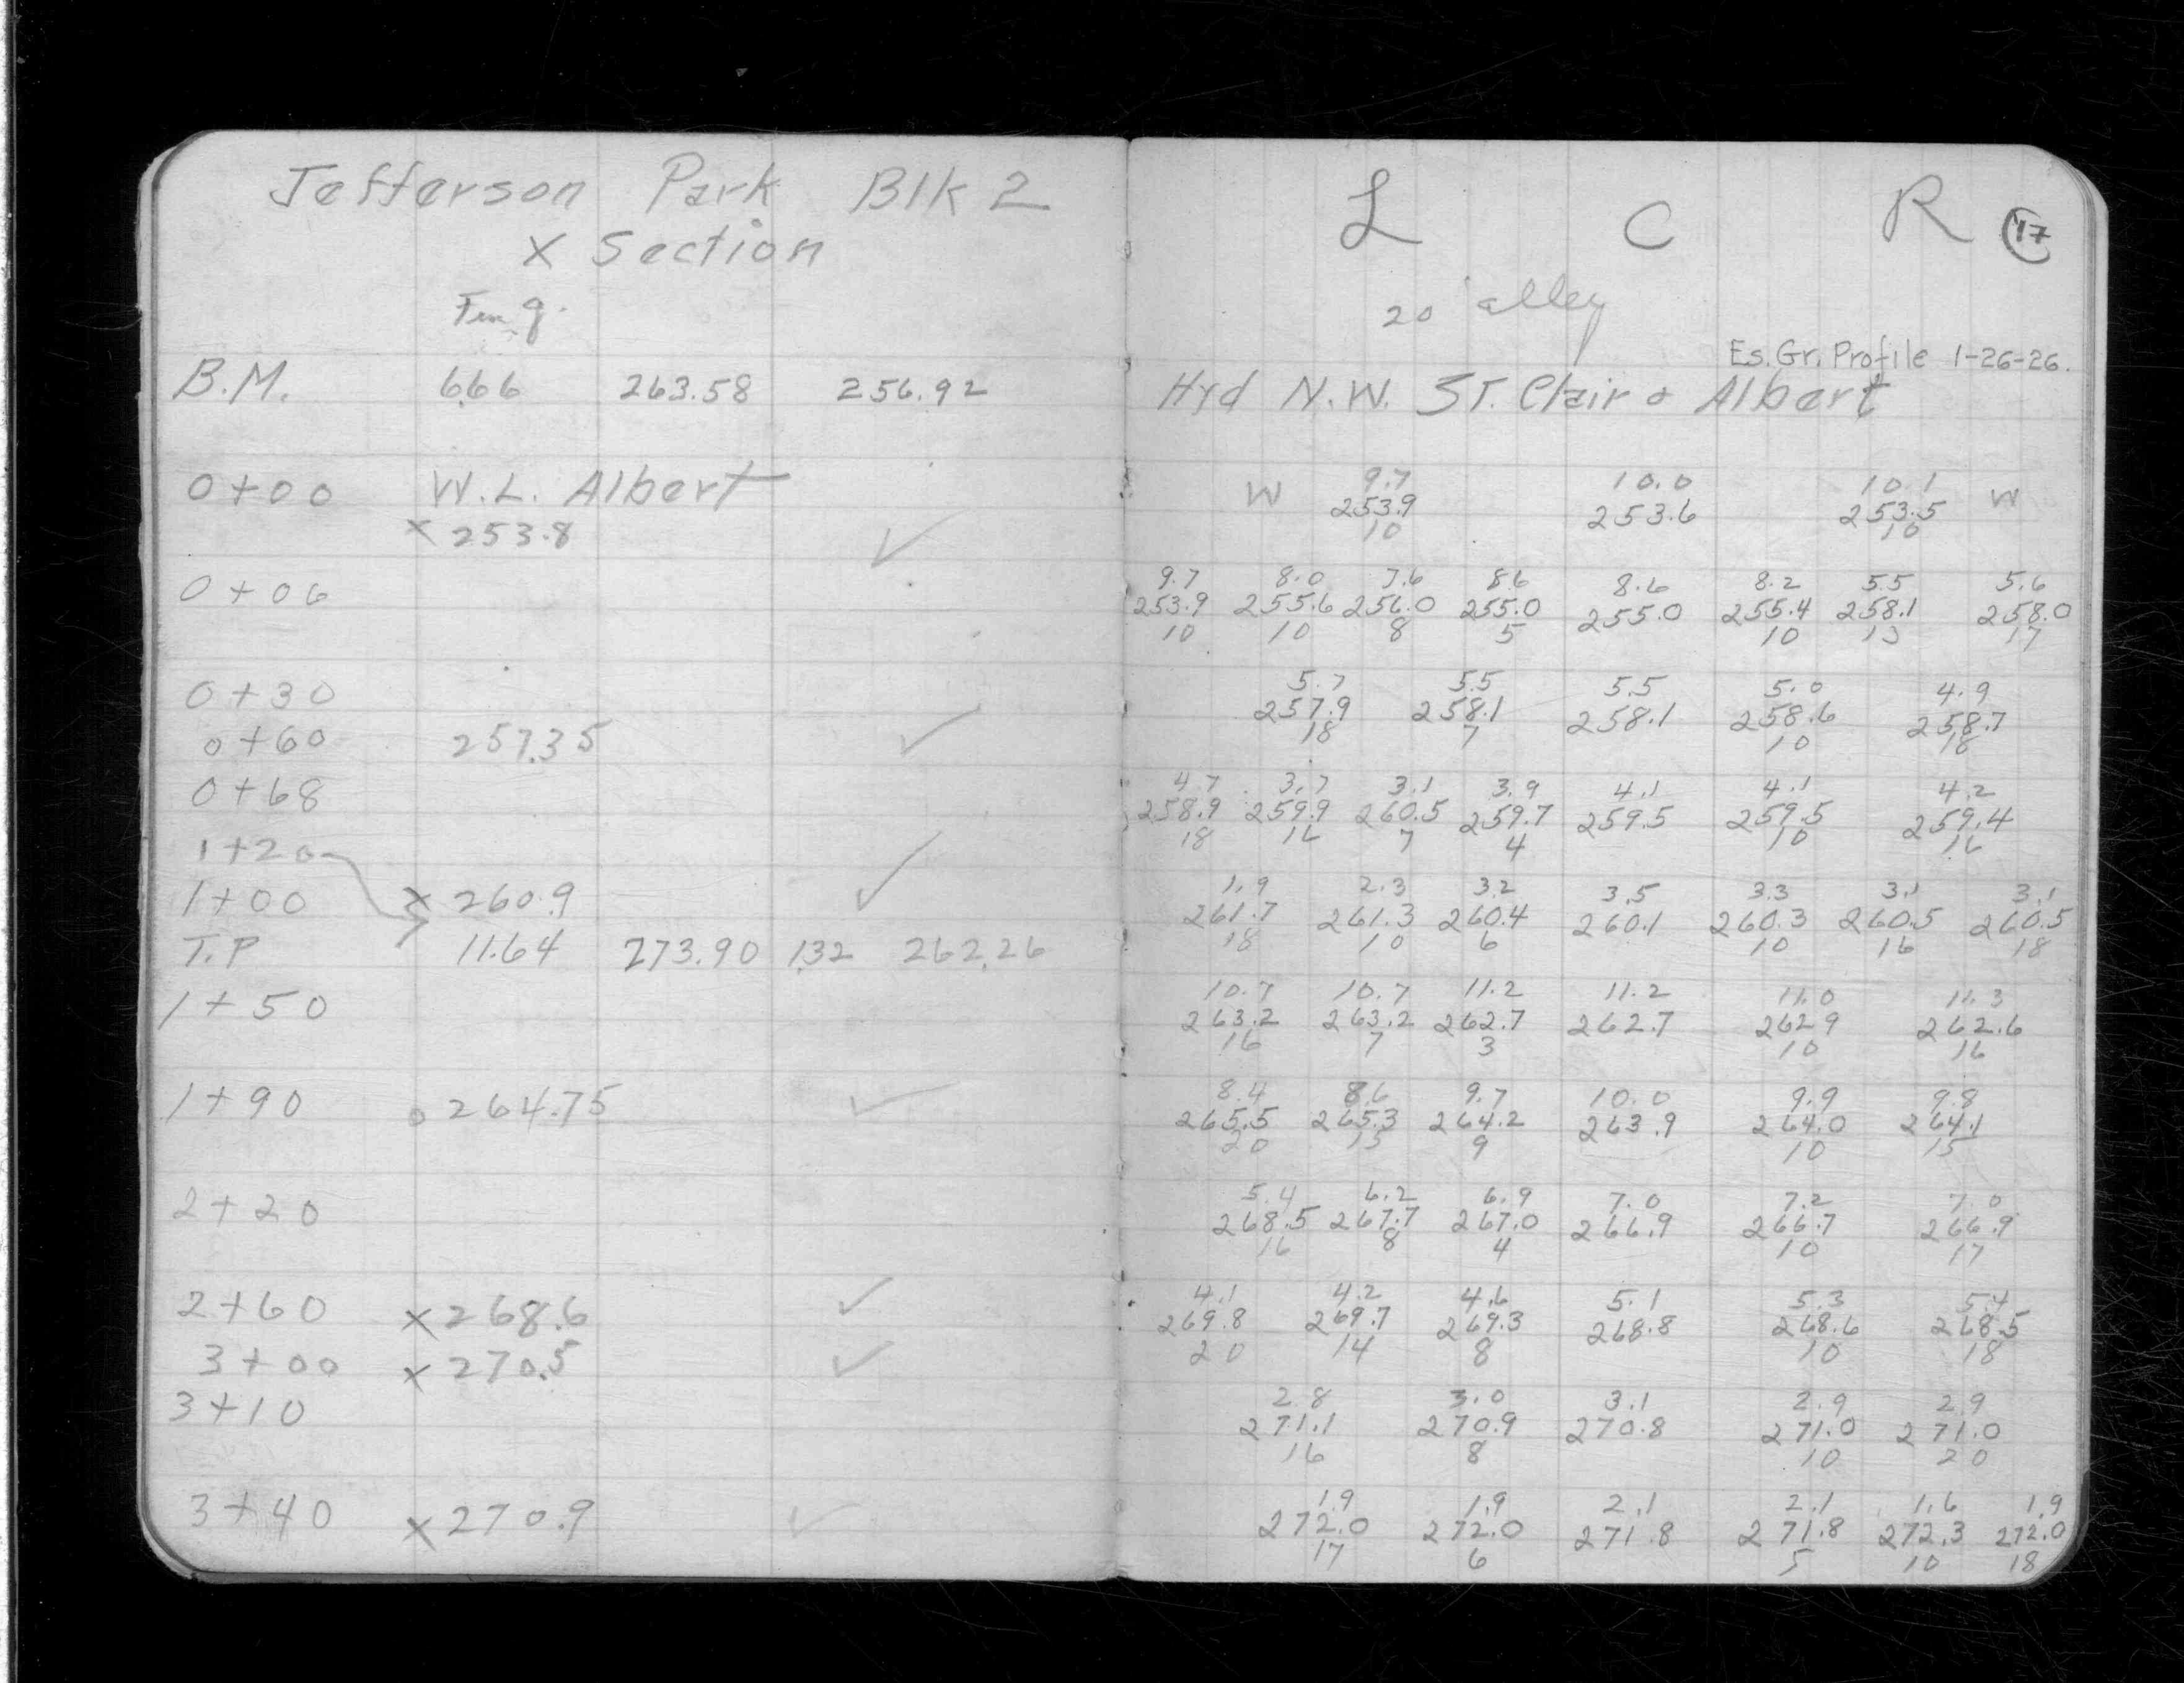 Jefferson Park Blk 2
X Section
B.M. 6.66 263.58 256.92
0+00 W.L. Albert
x 253.8 ✓
0+06
0+30
0+60 257.35 ✓
0+68
1+20
1+00 x 260.9 ✓
T.P 11.64 273.90 1.32 262.26
1+50
1+90 o 264.75 ✓
2+20
2+60 x 268.6 ✓
3+00 x 270.5 ✓
3+10
3+40 x 270.9 ✓
L C R 17
20' alley
Es. Gr. Profile 1-26-26.
Hyd N.W. ST. Clair & Albert
W 9.7 10.0 10.1 W
253.9 253.6 253.5
10 10
9.7 8.0 7.6 8.6 8.6 8.2 5.5 5.6
253.9 255.6 256.0 255.0 255.0 255.4 258.1 258.0
10 10 8 5 10 13 17
5.7 5.5 5.5 5.0 4.9
257.9 258.1 258.1 258.6 258.7
18 7 10 18
4.7 3.7 3.1 3.9 4.1 4.1 4.2
258.9 259.9 260.5 259.7 259.5 259.5 259.4
18 16 7 4 10 16
1.9 2.3 3.2 3.5 3.3 3.1 3.1
261.7 261.3 260.4 260.1 260.3 260.5 260.5
18 10 6 10 16 18
10.7 10.7 11.2 11.2 11.0 11.3
263.2 263.2 262.7 262.7 262.9 262.6
16 7 3 10 16
8.4 8.6 9.7 10.0 9.9 9.8
265.5 265.3 264.2 263.9 264.0 264.1
20 15 9 10 15
5.4 6.2 6.9 7.0 7.2 7.0
268.5 267.7 267.0 266.9 266.7 266.9
16 8 4 10 17
4.1 4.2 4.6 5.1 5.3 5.4
269.8 269.7 269.3 268.8 268.6 268.5
20 14 8 10 18
2.8 3.0 3.1 2.9 2.9
271.1 270.9 270.8 271.0 271.0
16 8 10 20
1.9 1.9 2.1 2.1 1.6 1.9
272.0 272.0 271.8 271.8 272.3 272.0
17 6 5 10 18